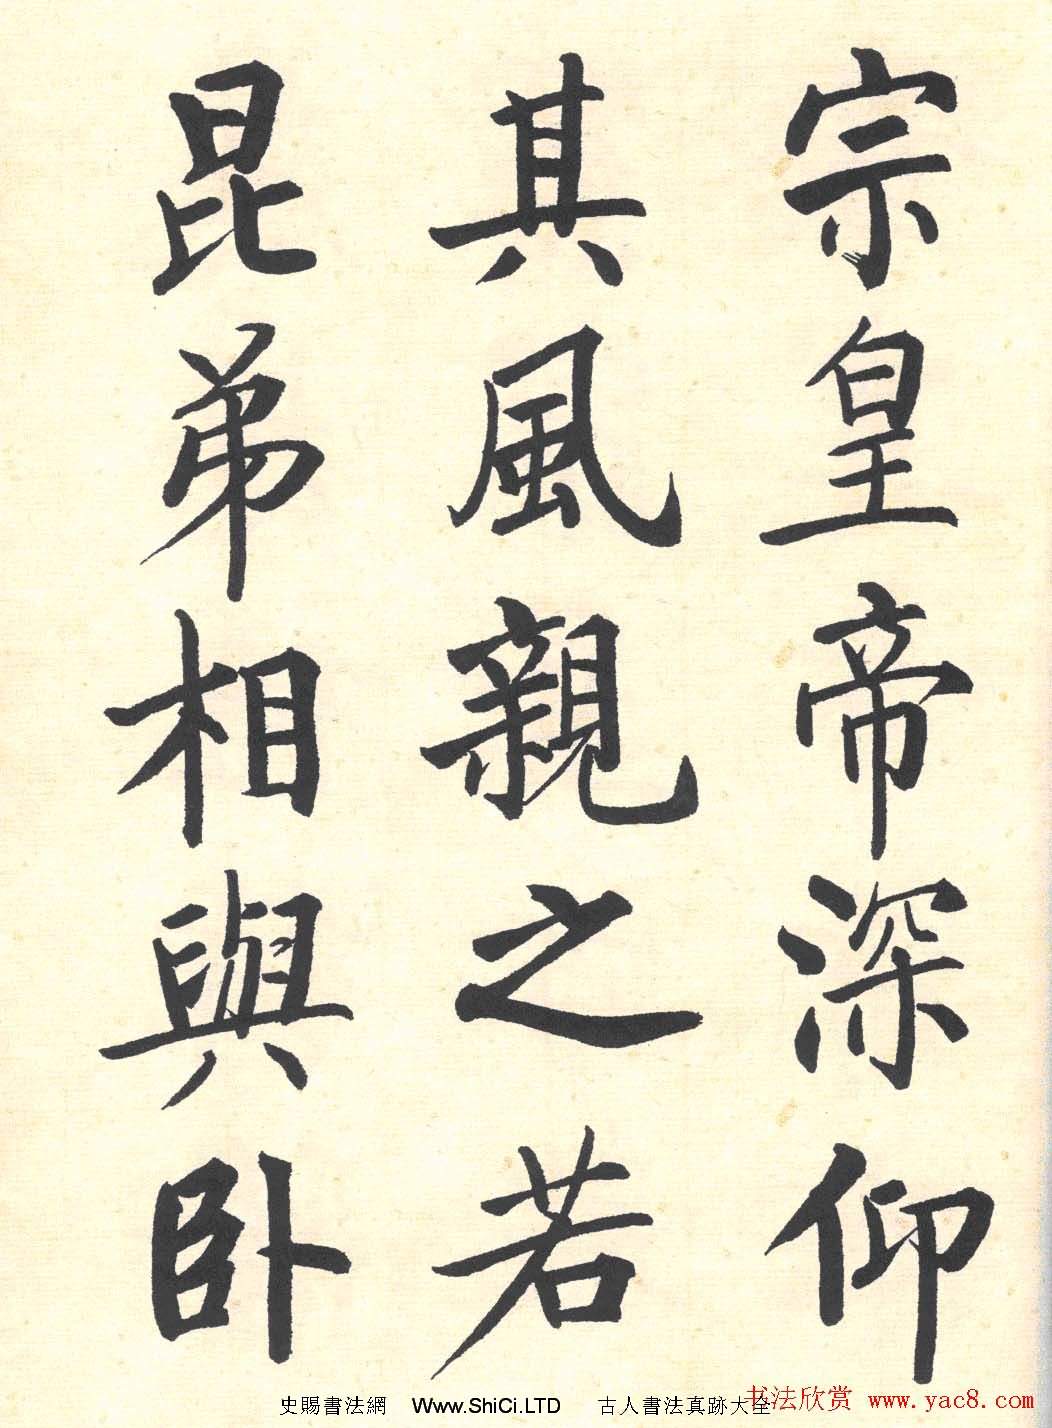 宗皇帝深仰
其風親之若
昆弟相與卧
史賜書法網 Www.ShiCi.LTD 古人書法真跡大全
书法欣赏 www.yac8.com